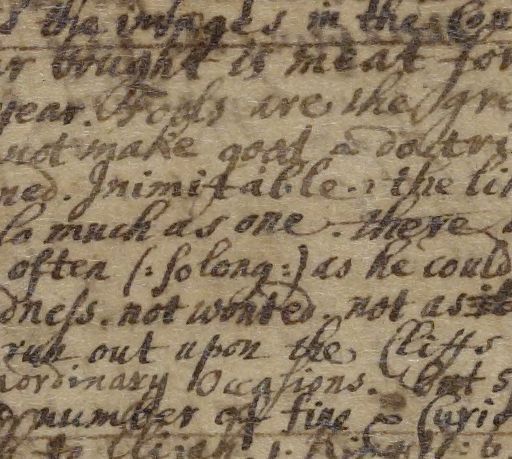 the images in the Con
bought is meat for
year. Fools are the gre
not make good a doctri
ned. Inimitable. the li
so much as one. there
often (: so long :) as he could
dness. not wonted. not as it
run out upon the Cliffs
aordinary Occasions. but s
number of fine & Curio